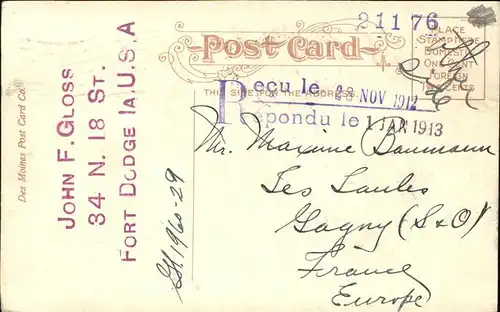 21176
Post Card
THIS SIDE FOR THE ADDRESS.
PLACE
STAMP HERE
DOMESTIC
ONE CENT
FOREIGN
TWO CENTS
Reçu le 28 NOV 1912
Répondu le 1 JAN 1913
Mr. Maxime Baumann
Les Saules
Gagny (S&O)
France
Europe
JOHN F. GLOSS
34 N. 18 ST.
FORT DODGE IA. U.S.A
Des Moines Post Card Co.